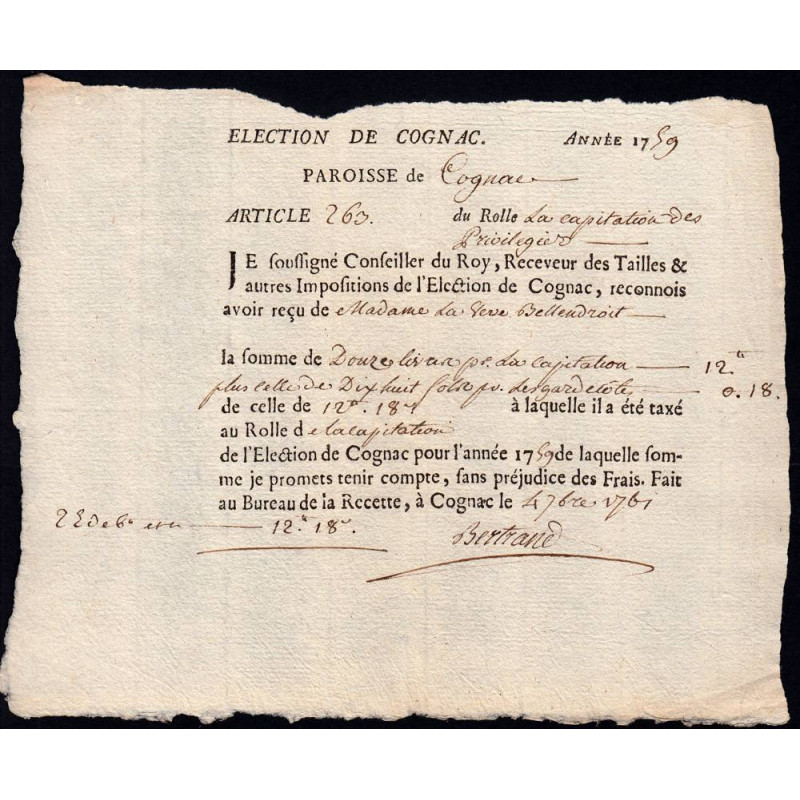 ELECTION DE COGNAC. ANNÉE 1759
PAROISSE de Cognac
ARTICLE 263. du Rolle La capitation des
Privilegiés
JE soussigné Conseiller du Roy, Receveur des Tailles &
autres Impositions de l'Election de Cognac, reconnois
avoir reçu de Madame La Veve Bellendroit
la somme de Douze livres pr. La capitation 12.
plus celle de Dix huit sols pr. les garde côtes 0. 18.
de celle de 12. 18 à laquelle il a été taxé
au Rolle de la capitation
de l'Election de Cognac pour l'année 1759 de laquelle som-
me je promets tenir compte, sans préjudice des Frais. Fait
au Bureau de la Recette, à Cognac le 4 7bre 1761
12. 18.
Bertrand